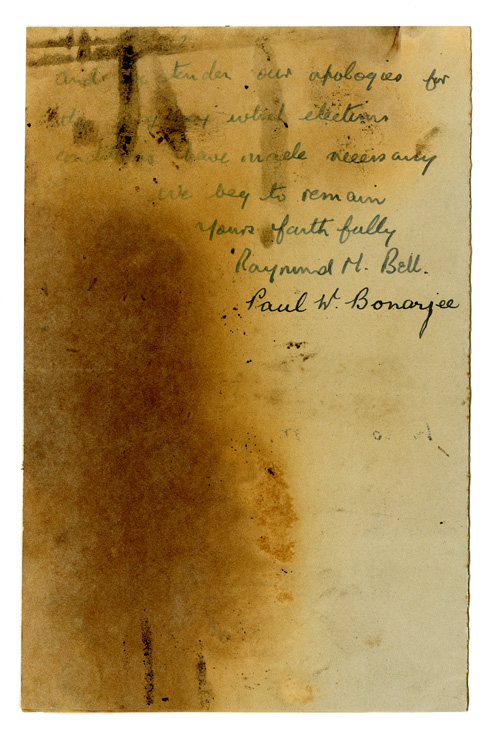 and we tender our apologies for
the delay which elections
conditions have made necessary
we beg to remain
yours faithfully
Raymond M. Bell.
Paul W. Bonarjee